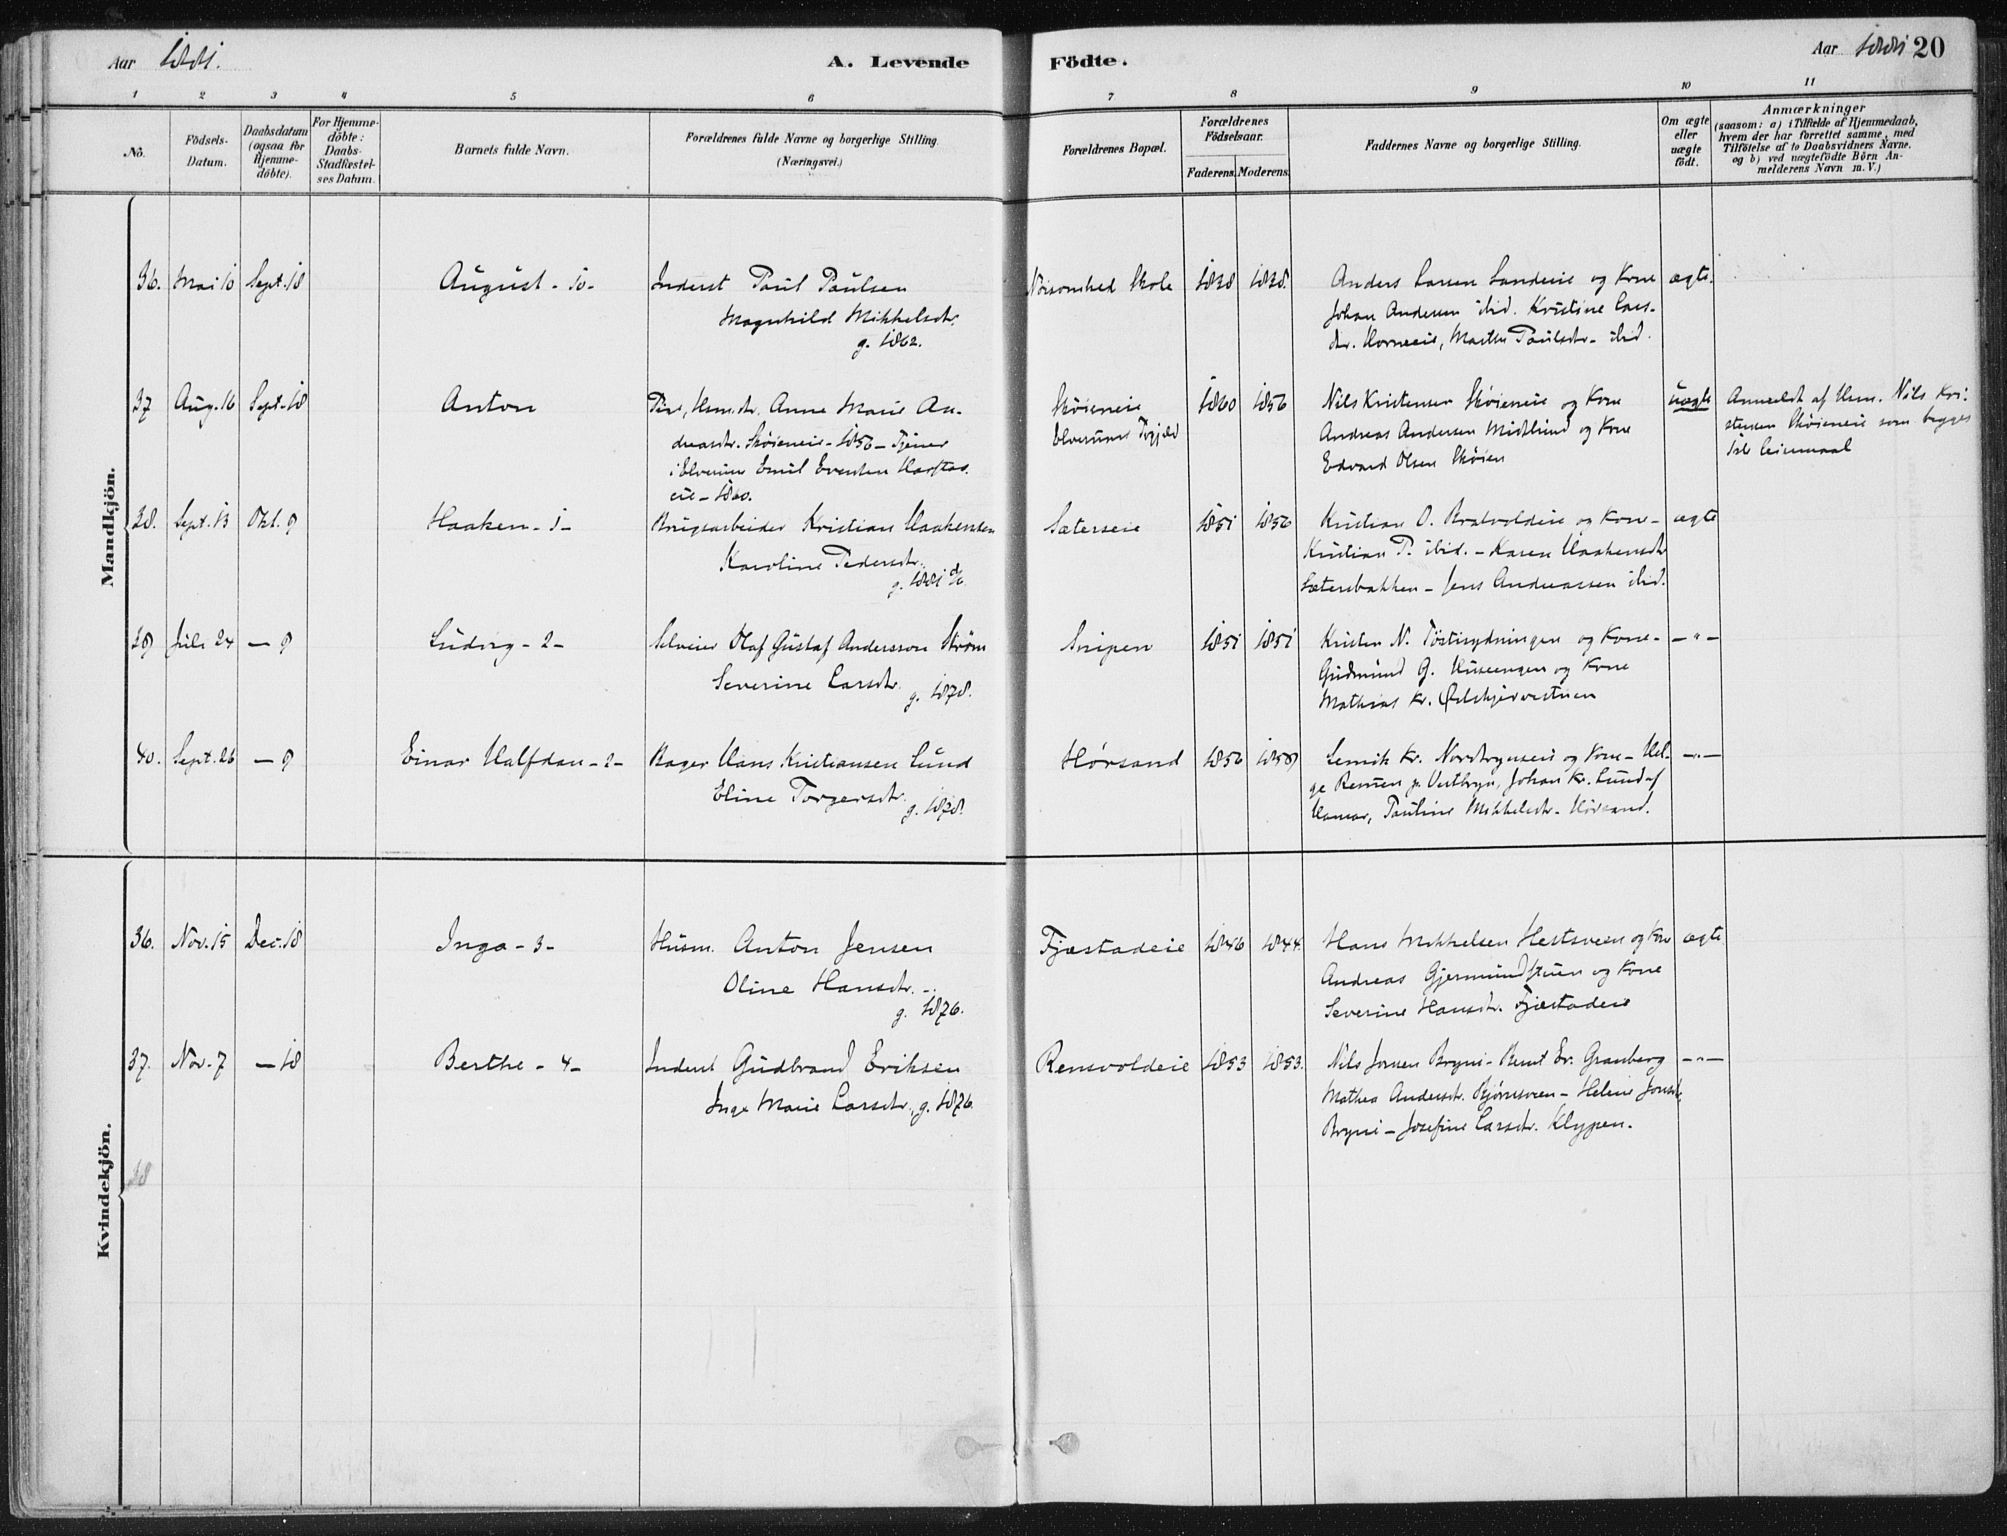 Aar 1881.
A. Levende Födte.
Aar 1881
20
1 2 3 4 5 6 7 8 9 10 11
No.
Födsels-
Datum.
Daabsdatum
(ogsaa for
Hjemme-
döbte).
For Hjemme-
döbte:
Daabs-
Stadfæstel-
ses Datum.
Barnets fulde Navn.
Forældrenes fulde Navne og borgerlige Stilling
(Næringsvei.)
Forældrenes Bopæl.
Forældrenes
Födselsaar.
Faderens. Moderens.
Faddernes Navne og borgerlige Stilling.
Om ægte
eller
uægte
födt.
Anmærkninger
(saasom: a) i Tilfælde af Hjemmedaab,
hvem der har forrettet samme, med
Tilföielse af to Daabsvidners Navne.
og b) ved uægtefödte Börn An-
melderens Navn m. V.)
Mandkjön.
36. Mai 10 Sept. 18 August - 10 - Inderst Paul Paulsen
Magnhild Mikkelsdtr.
g. 1862.
Nøisomhed Skole 1838 1838.
Anders Larsen Sandeie og Kone
Johan Andersen ibid. Kristine Lars-
dtr. Horneeie, Marthe Paulsdtr - ibid.
ægte.
37 Aug. 16 Sept. 18 Anton
Pige, Hsm.dtr. Anne Marie An-
dreasdtr. Skøieneie - 1856 - Tjener
i Elverum Emil Evensen
eie - 1860.
Skøieneie
Elverums Prgjæld
1860 1856
Nils Kristensen Skøieneie og Kone
Andreas Andersen Midtlund og Kone
Edvard Olsen Skøien
uægte
Anmeldt af Hsm. Nils Kri-
stensen Skøieneie som begges
1ste Leiermaal
38. Sept. 13 Okt. 9 Haaken - 1 -
Brugsarbeider Kristian Haakensen
Karoline Pedersdtr.
g. 1881
Sæterseie 1851 1856
Kristian O. Bratvoldeie og Kone -
Kristian P. ibid. - Karen Haakensdtr
Sætersbakken - Jens Andreassen ibid.
ægte
39 Juli 24 — 9 Ludvig - 2 -
Selveier Olaf Gustaf Andersson Strøm
Severine Larsdtr.
g. 1878.
Snipen 1851 1851
Kristen N. og Kone -
Gudmund G. Huseengen og Kone
Mathias Kr.
— " —
40. Sept. 26 — 9 Einar Halfdan - 2 -
Bager Hans Kristiansen Lund
Eline Torgersdtr.
g. 1878.
Hørsand 1856 1859
Semik Kr. og Kone - Hel-
ge Renuen p. Vestbryn, Johan Kr. Lund af
Hamar, Pauline Mikkelsdtr. Hørsand.
— " —
Kvindekjön.
36. Nov. 15 Dec. 18 Inga - 3 -
Husm. Anton Jensen
Oline Hansdtr.
g. 1876.
Fjæstadeie 1846 1844.
Hans Mikkelsen Hestsveen og Kone
Andreas Gjermundstuen og Kone
Severine Hansdtr. Fjæstadeie
ægte
37. Nov. 7 — 18 Berthe - 4 -
Inderst Gudbrand Eriksen
Inge Marie Larsdtr. g. 1876.
Rensvoldeie 1853 1853.
Nils Jonsen Bryni - Bernt Ev. Granberg
Mathea Andersdtr. Bjørnsveen - Helene Jonsdtr.
Bryni - Josefine Larsdtr. Klypen.
— " —
38